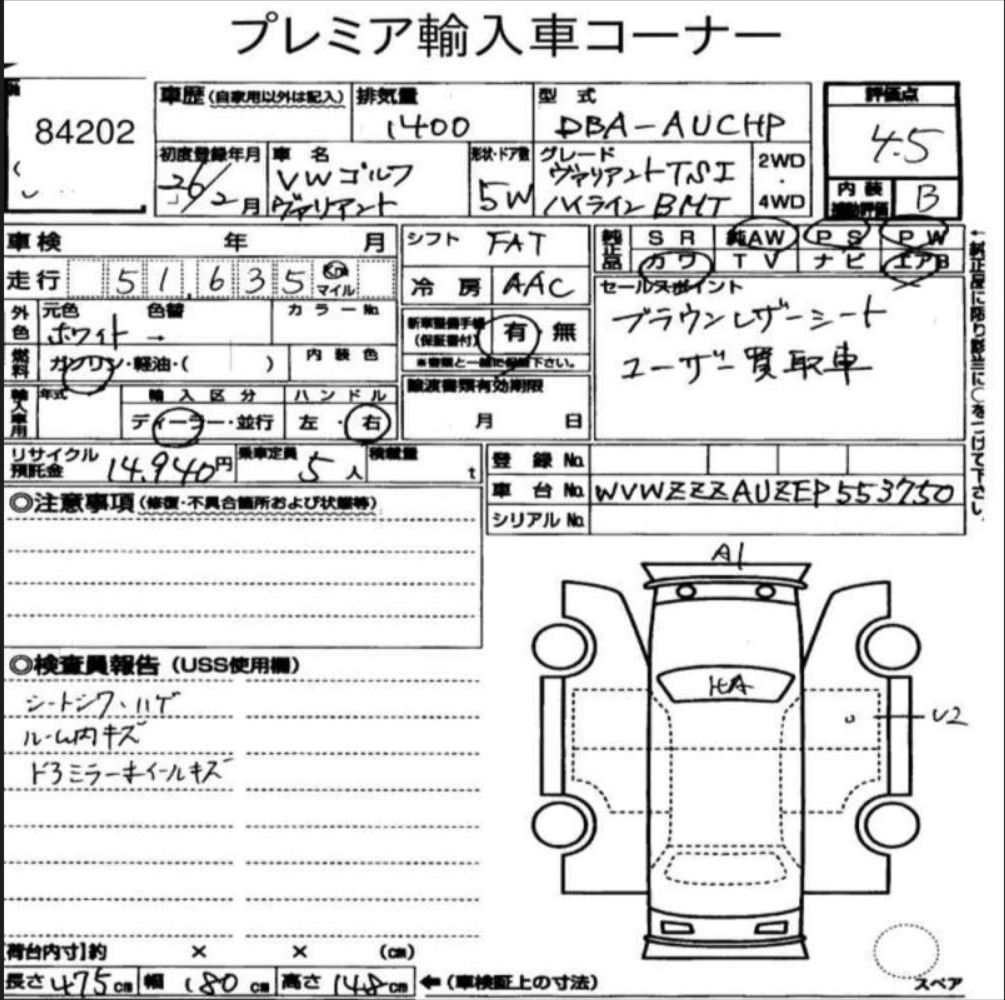 プレミア輸入車コーナー
84202
車歴(自家用以外は記入) 排気量 1400
型式 DBA-AUCHP
評価点 4.5
初度登録年月 26/2月
車名 VWゴルフ ヴァリアント
形状・ドア数 5W
グレード ヴァリアントTSI ハイラインBMT
2WD・4WD
内装補助評価 B
車検 年 月
シフト FAT
純正品 SR 純AW PS PW
カワ TV ナビ エアB
走行 51,635 Km マイル
冷房 AAC
セールスポイント
ブラウンレザーシート
ユーザー買取車
外色 元色 ホワイト 色替 → カラーNo.
新車整備手帳(保証書付) 有・無
※書類と一緒に保管下さい。
燃料 ガソリン・軽油・( ) 内装色
譲渡書類有効期限
月 日
輸入車用 年式 輸入区分 ディーラー・並行 ハンドル 左・右
リサイクル預託金 14,940円 乗車定員 5人 積載量 t
登録No.
車台No. WVWZZZAUZEP553750
シリアルNo.
◎注意事項(修復・不具合箇所および状態等)
A1
HA
U2
◎検査員報告(USS使用欄)
シートシワ、ハゲ
ルーム内キズ
ドアミラーホイールキズ
【荷台内寸】約 × × (cm)
長さ475cm 幅180cm 高さ148cm ←(車検証上の寸法)
スペア